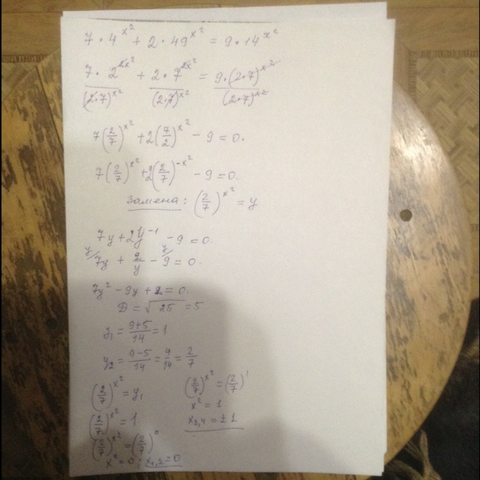 7·4^x² + 2·49^x² = 9·14^x²
7·2^2x²/(2·7)^x² + 2·7^2x²/(2·7)^x² = 9·(2·7)^x²/(2·7)^x²
7(2/7)^x² + 2(7/2)^x² - 9 = 0.
7(2/7)^x² + 2(2/7)^-x² - 9 = 0.
Замена: (2/7)^x² = y
7y + 2y^-1 - 9 = 0.
y/7y + 2/y - y/9 = 0.
7y² - 9y + 2 = 0
D = √25 = 5
y₁ = (9+5)/14 = 1
y₂ = (9-5)/14 = 9/14 = 2/7
(2/7)^x² = y₁
(2/7)^x² = 1
(2/7)^x² = (2/7)^°
x² = 0 x₁,₂ = 0
(2/7)^x² = (2/7)^1
x² = 1
x₃,₄ = ±1